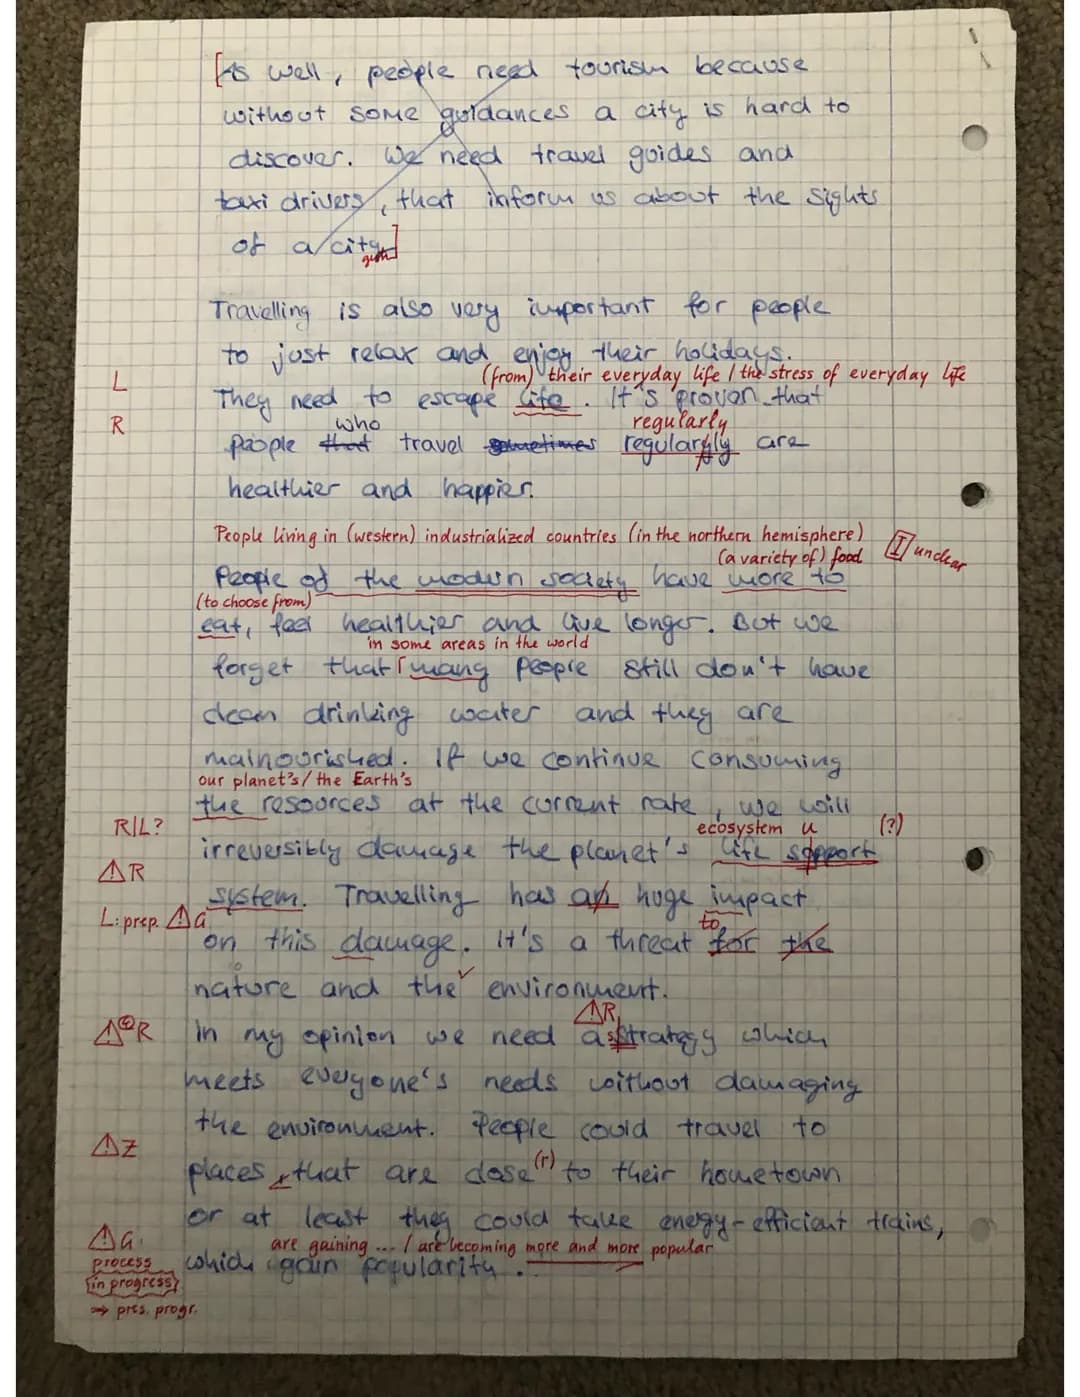 [As well, people need tourism because
without some guidances a city is hard to
discover. We need travel guides and
taxi drivers, that inform us about the sights
of a city.]
Travelling is also very important for people
to just relax and enjoy their holidays.
(from) their everyday life / the stress of everyday life
L They need to escape life. It's proven that
who regularly
R people that travel sometimes regulargly are
healthier and happier.
People living in (western) industrialized countries (in the northern hemisphere) I unclear
(a variety of) food
People of the modern society have more to
(to choose from)
eat, feel healthier and live longer. But we
in some areas in the world
forget that many people still don't have
clean drinking water and they are
malnourished. If we continue consuming
our planet's / the Earth's
the resources at the current rate, we will
R/L? ecosystem u (?)
irreversibly damage the planet's life sopport
⚠R
system. Travelling has an huge impact
L: prep. ⚠G to
on this damage. It's a threat for the
nature and the ✓ environment.
⚠R
⚠R In my opinion we need a strategy which
meets everyone's needs without damaging
the environment. People could travel to
⚠Z (r)
places, that are close to their hometown
or at least they could take energy-efficient trains,
⚠G are gaining ... / are becoming more and more popular
process which gain popularity.
in progress
→ pres. progr.